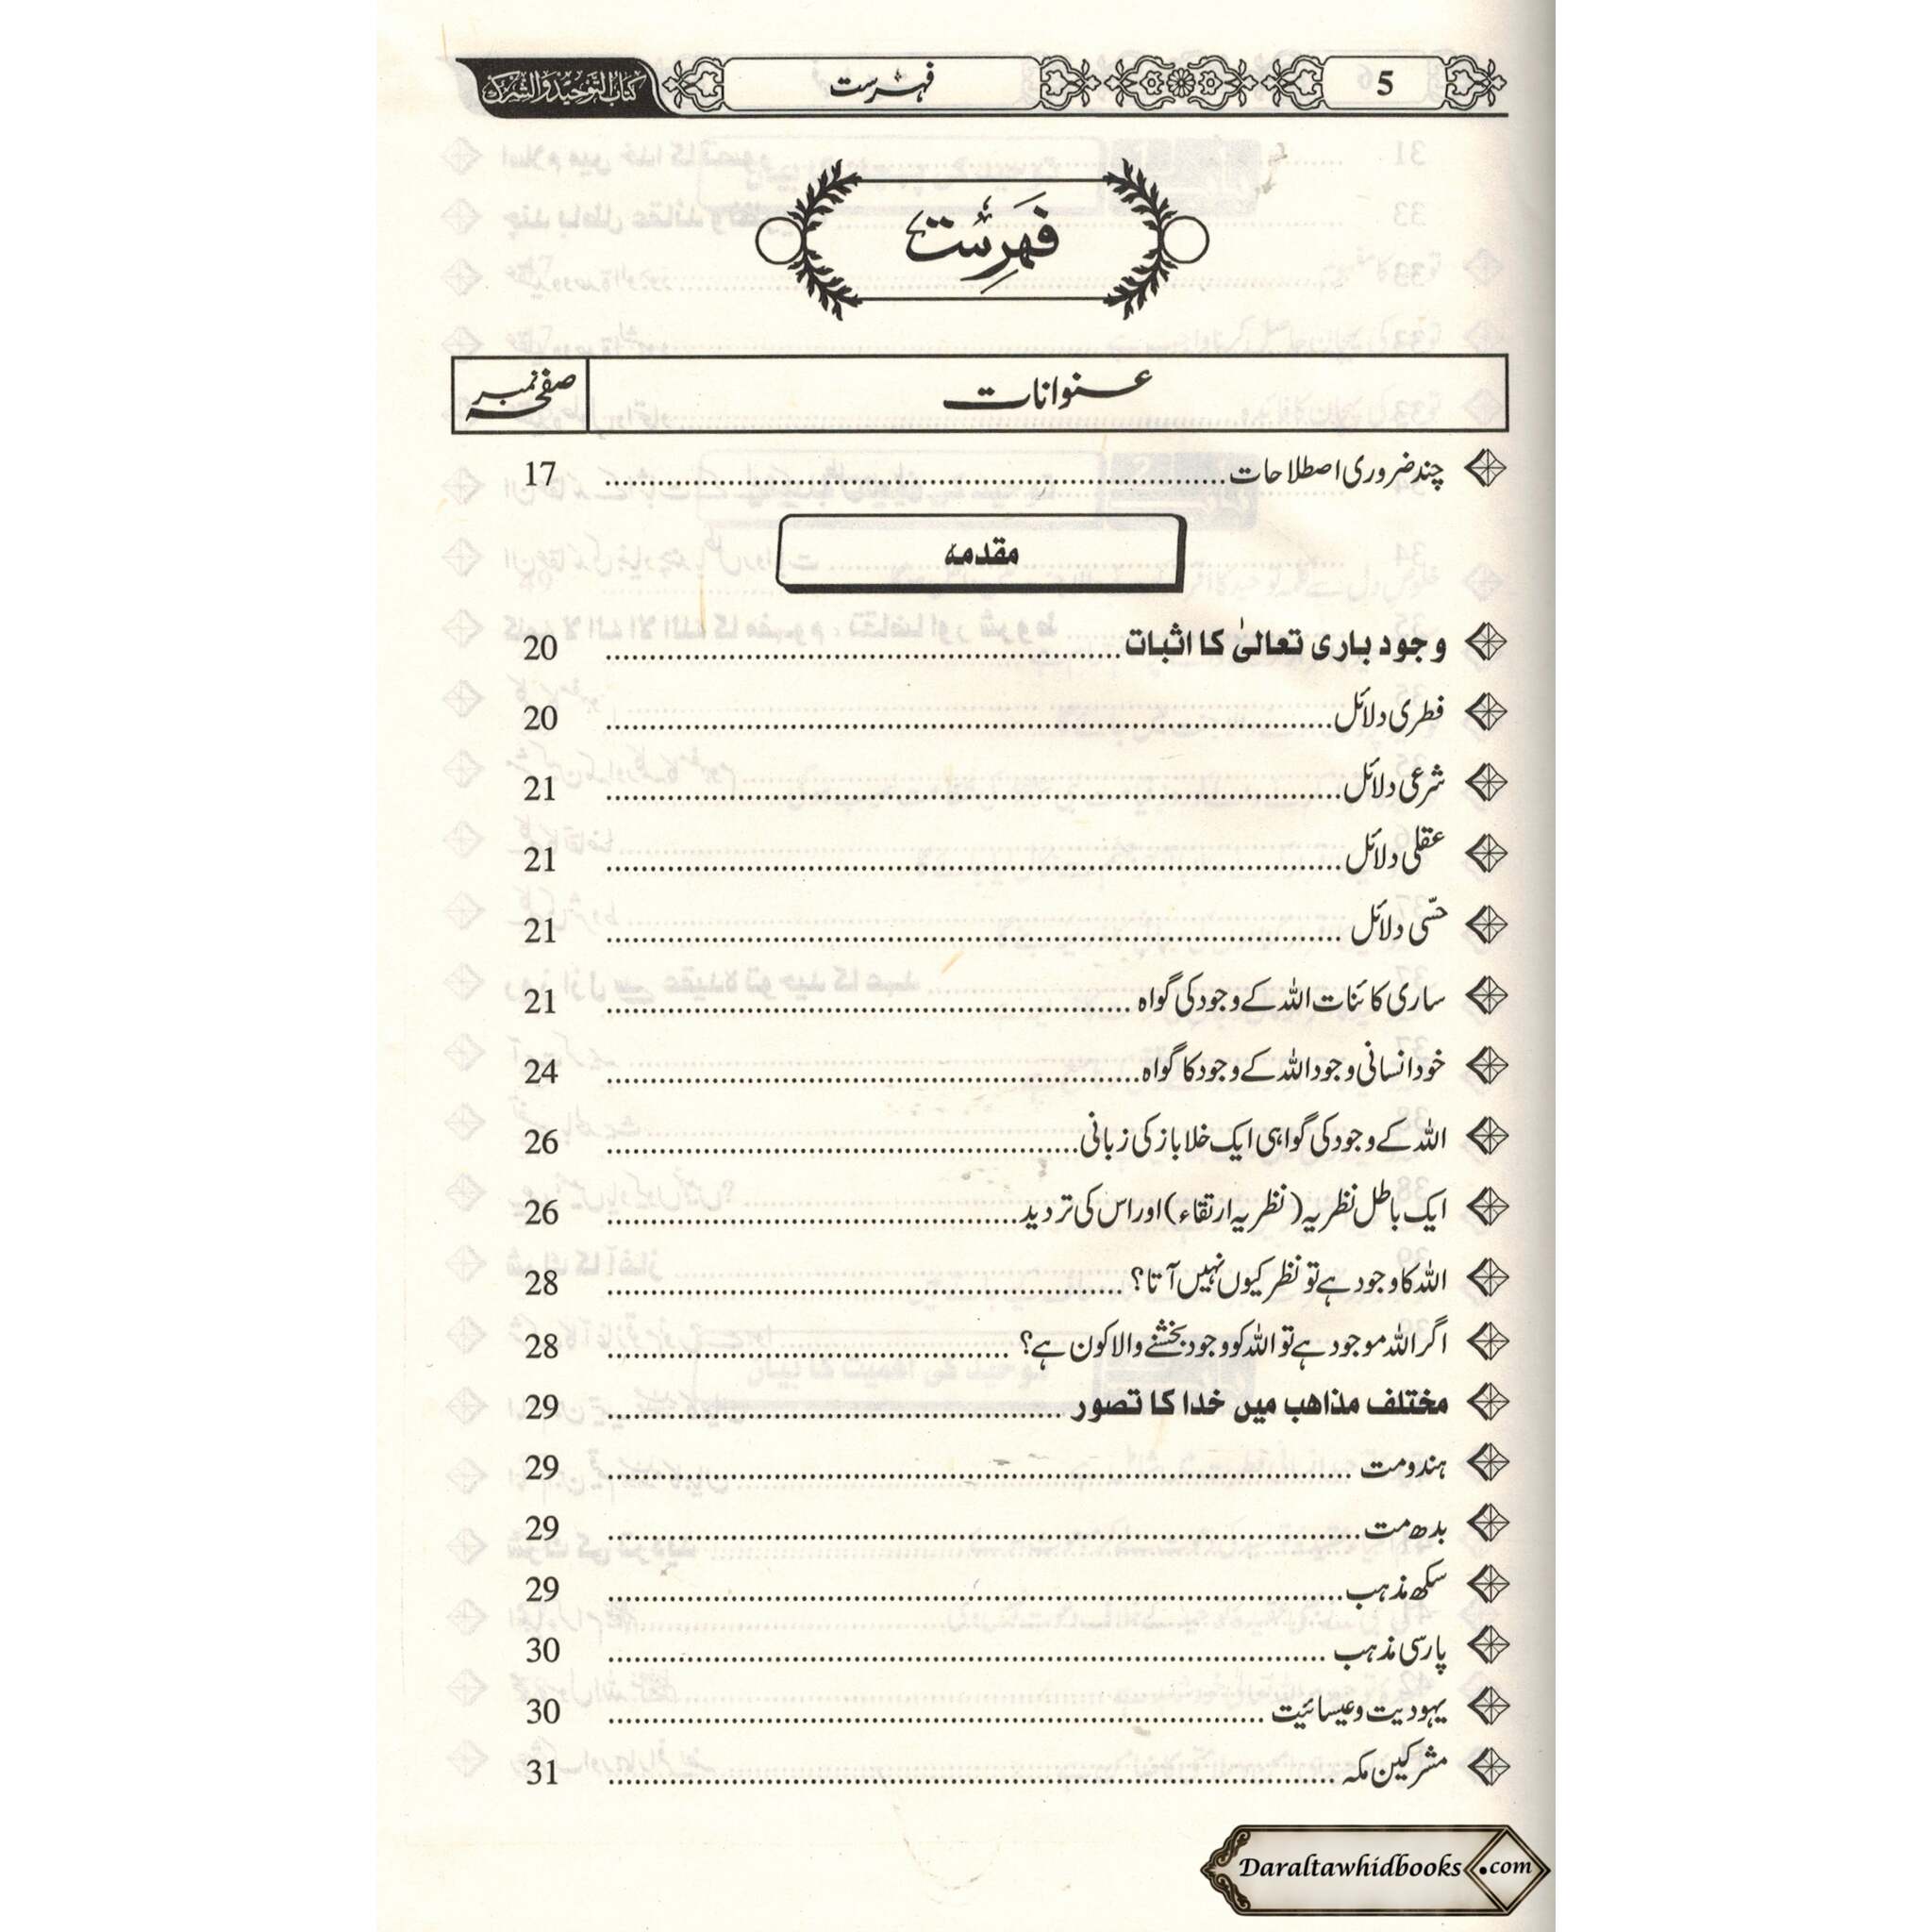 5
فہرست
کتاب التوحید والشرک
فہرست
عنوانات
صفحہ نمبر
چند ضروری اصطلاحات 17
مقدمہ
وجود باری تعالیٰ کا اثبات 20
فطری دلائل 20
شرعی دلائل 21
عقلی دلائل 21
حسّی دلائل 21
ساری کائنات اللہ کے وجود کی گواہ 21
خود انسانی وجود اللہ کے وجود کا گواہ 24
اللہ کے وجود کی گواہی ایک خلا باز کی زبانی 26
ایک باطل نظریہ (نظریہ ارتقاء) اور اس کی تردید 26
اللہ کا وجود ہے تو نظر کیوں نہیں آتا؟ 28
اگر اللہ موجود ہے تو اللہ کو وجود بخشنے والا کون ہے؟ 28
مختلف مذاهب میں خدا کا تصور 29
ہندومت 29
بدھ مت 29
سکھ مذہب 29
پارسی مذہب 30
یہودیت وعیسائیت 30
مشرکین مکہ 31
Daraltawhidbooks.com